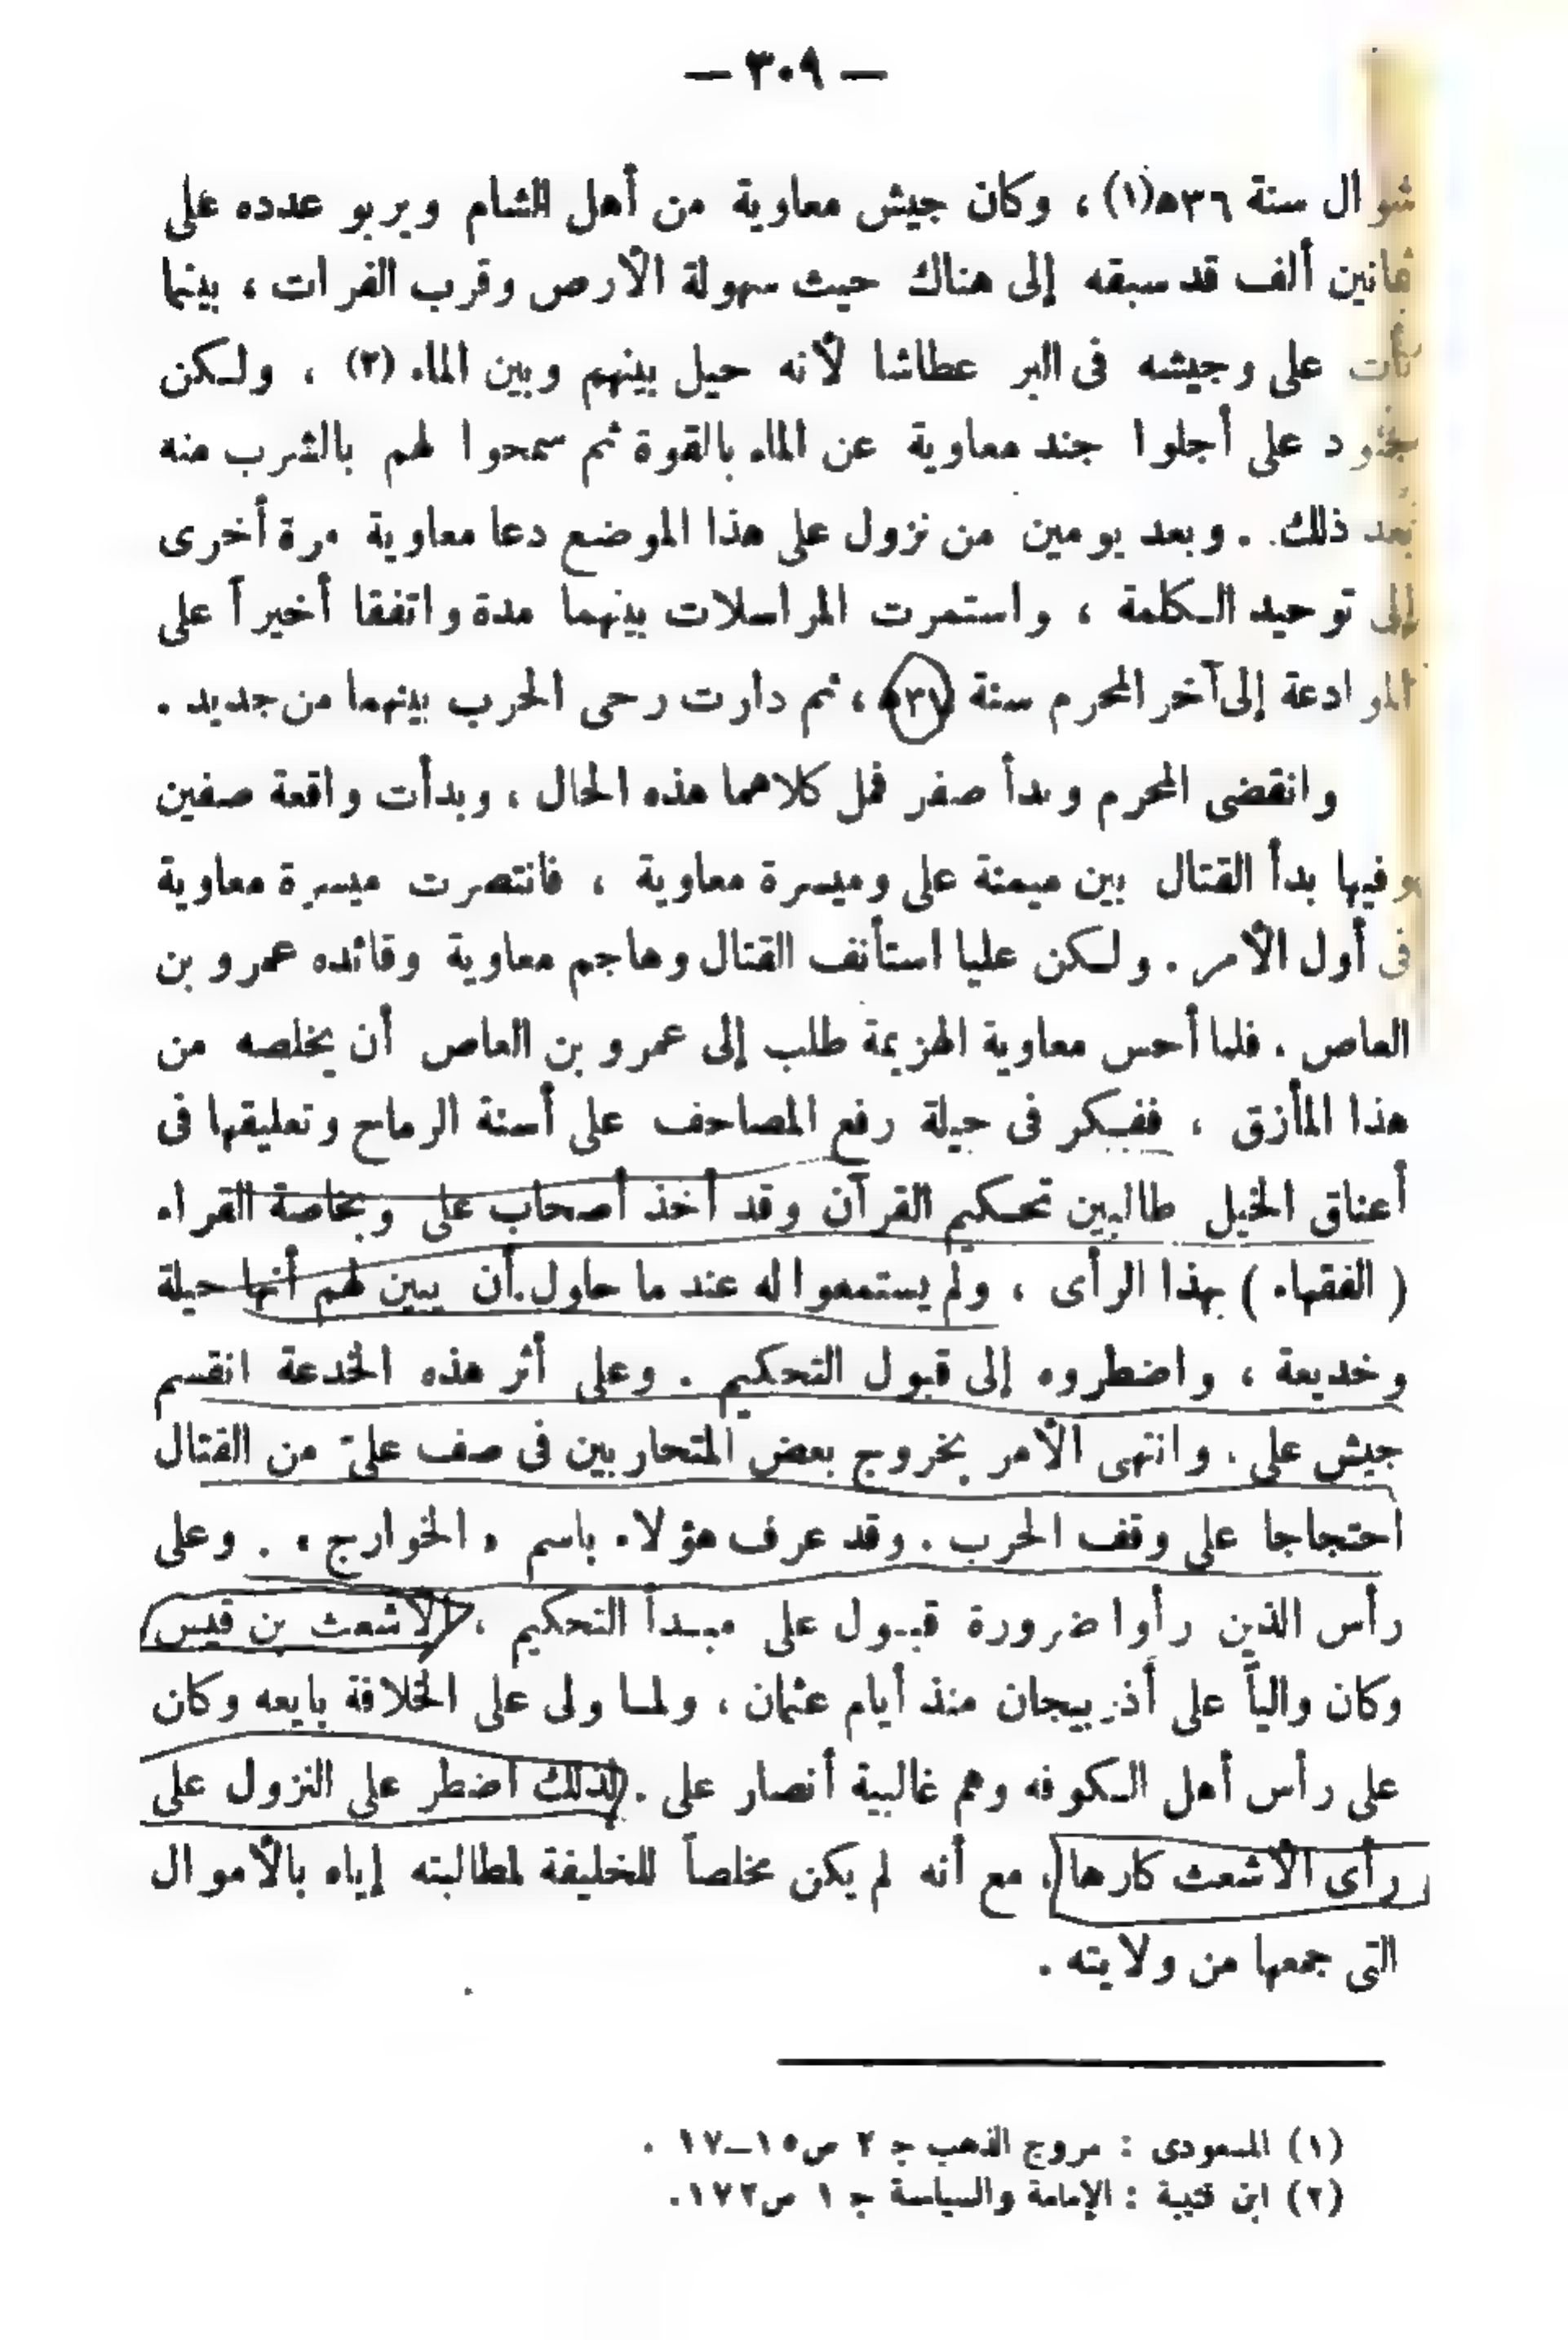 — ٣٠٩ —
شوال سنة ٣٦ه(١) ، وكان جيش معاوية من أهل الشام ويربو عدده على
ثمانين ألف قد سبقه إلى هناك حيث سهولة الأرض وقرب الفرات ، بينما
بات على وجيشه فى البر عطاشا لأنه حيل بينهم وبين الماء (٢) ، ولكن
جنود على أجلوا جند معاوية عن الماء بالقوة ثم سمحوا لهم بالشرب منه
بعد ذلك . وبعد يومين من نزول على هذا الموضع دعا معاوية مرة أخرى
إلى توحيد الكلمة ، واستمرت المراسلات بينهما مدة واتفقا أخيراً على
الموادعة إلى آخر المحرم سنة ٣٧ه ، ثم دارت رحى الحرب بينهما من جديد .
وانقضى المحرم وبدأ صفر فمل كلاهما هذه الحال ، وبدأت واقعة صفين
وفيها بدأ القتال بين ميمنة على وميسرة معاوية ، فانتصرت ميسرة معاوية
فى أول الأمر . ولكن عليا استأنف القتال وهاجم معاوية وقائده عمرو بن
العاص . فلما أحس معاوية الهزيمة طلب إلى عمرو بن العاص أن يخلصه من
هذا المأزق ، ففكر فى حيلة رفع المصاحف على أسنة الرماح وتعليقها فى
أعناق الخيل طالبين تحكيم القرآن وقد أخذ أصحاب على وبخاصة القراء
( الفقهاء ) بهذا الرأى ، ولم يستمعوا له عند ما حاول أن يبين لهم أنها حيلة
وخديعة ، واضطروه إلى قبول التحكيم . وعلى أثر هذه الخدعة انقسم
جيش على ، وانتهى الأمر بخروج بعض المتحاربين فى صف علىّ من القتال
احتجاجا على وقف الحرب . وقد عرف هؤلاء باسم « الخوارج » . وعلى
رأس الذين رأوا ضرورة قبول على مبدأ التحكيم ، الأشعث بن قيس
وكان والياً على أذربيجان منذ أيام عثمان ، ولما ولى على الخلافة بايعه وكان
على رأس أهل الكوفه وهم غالبية أنصار على . لذلك اضطر على النزول على
رأى الأشعث كارها ، مع أنه لم يكن مخلصاً للخليفة لمطالبته إياه بالأموال
التى جمعها من ولايته .
(١) المسعودى : مروج الذهب ج ٢ ص١٥—١٧ .
(٢) ابن قتيبة : الإمامة والسياسة ج ١ ص١٧٢.